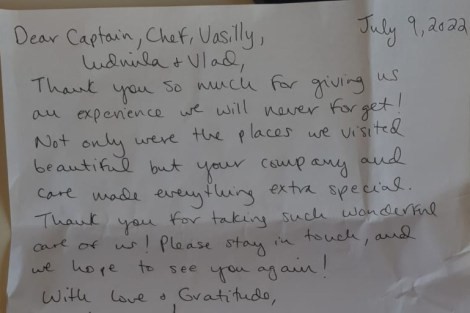 Dear Captain, Chef, Vasilly, July 9, 2022
Ludmila & Vlad,
Thank you so much for giving us
an experience we will never forget!
Not only were the places we visited
beautiful but your company and
care made everything extra special.
Thank you for taking such wonderful
care of us! Please stay in touch, and
we hope to see you again!
With love & Gratitude,